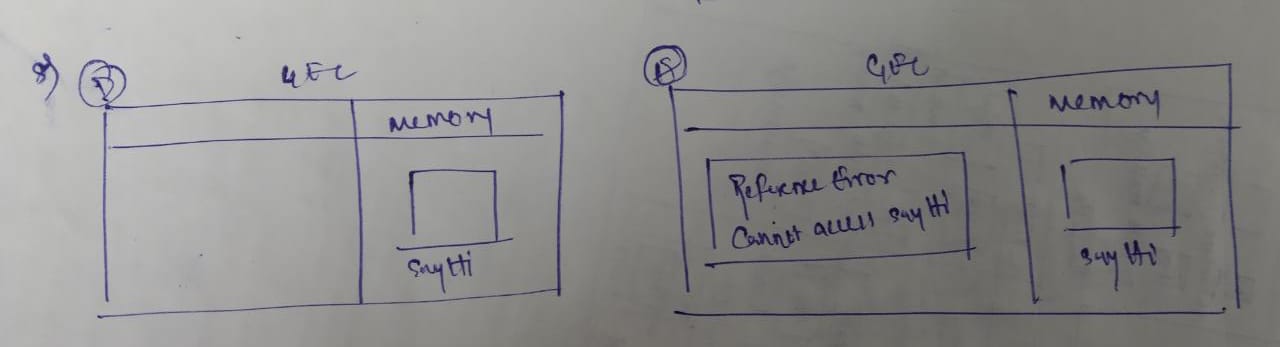 8)
B
GEC
Memory
SayHi
A
GEC
Memory
Reference Error
Cannot access sayHi
sayHi